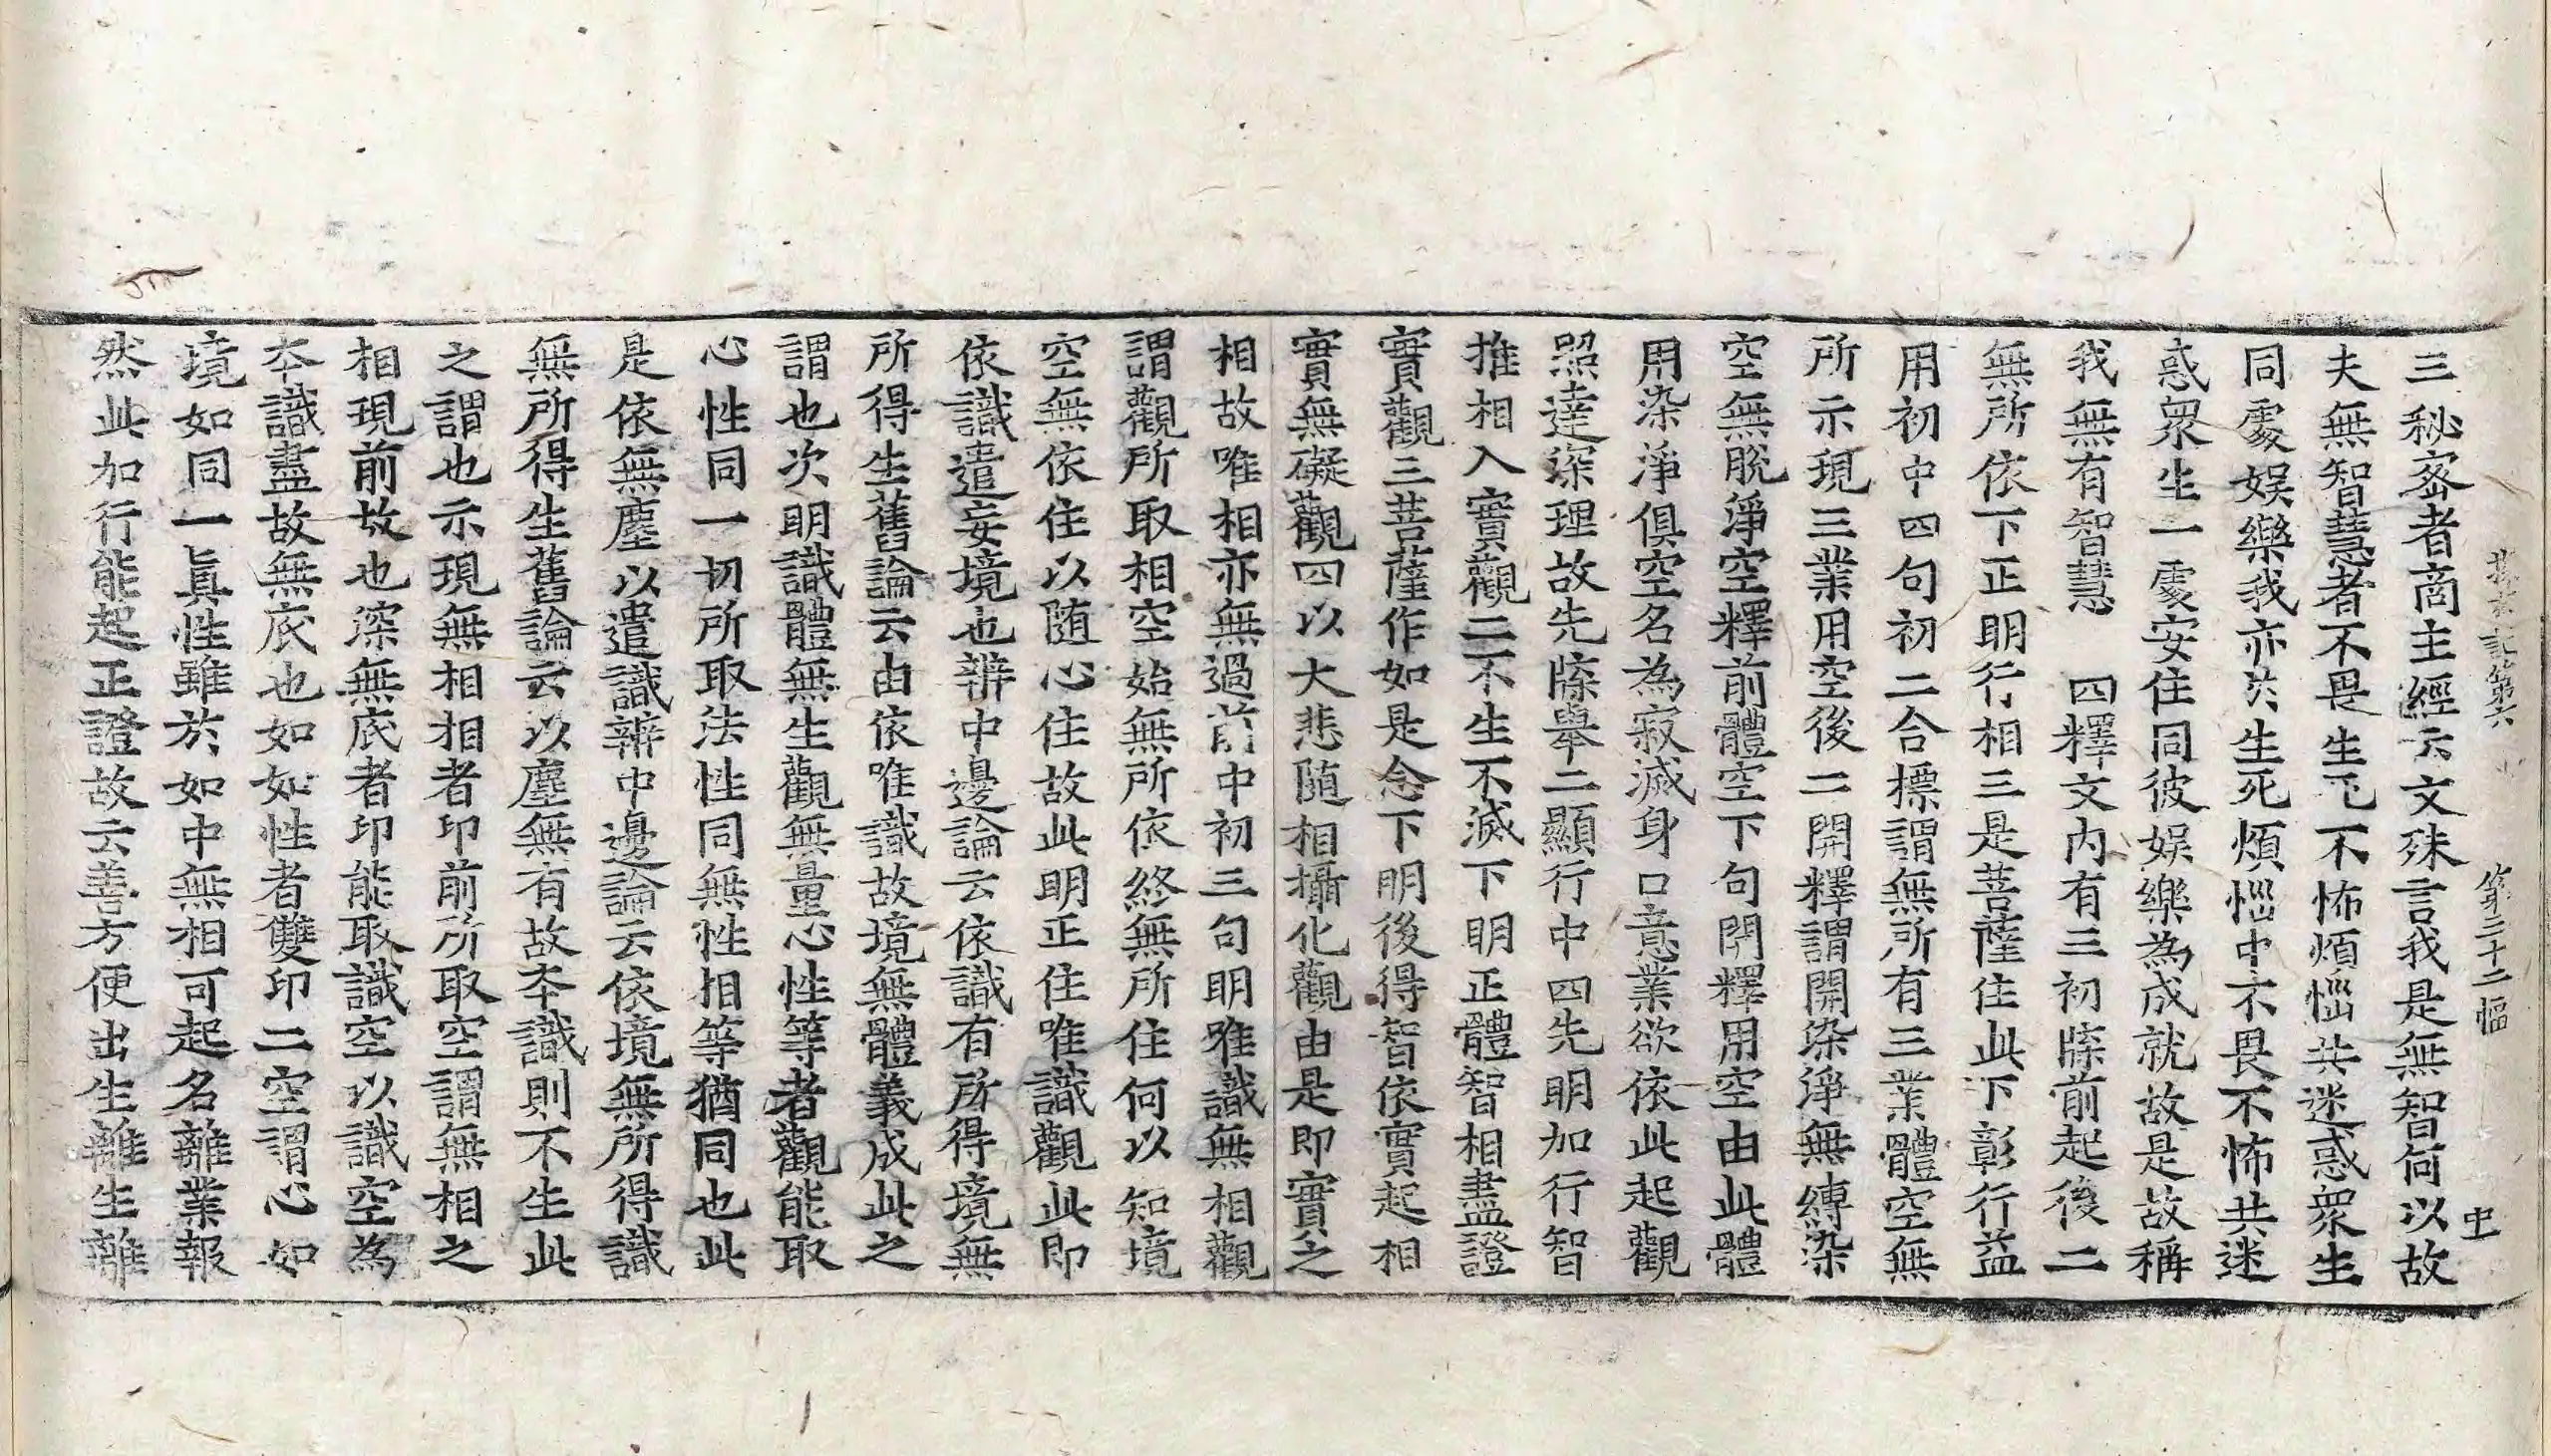 記第六 第二十二幅 史
三秘密者商主經云文殊言我是無智何以故
夫無智慧者不畏生死不怖煩惱共迷惑衆生
同處娯樂我亦於生死煩惱中不畏不怖共迷
惑衆生一處安住同彼娯樂為成就故是故稱
我無有智慧　四釋文内有三初牒前起後二
無所依下正明行相三是菩薩住此下彰行益
用初中四句初二合標謂無所有三業體空無
所示現三業用空後二開釋謂開染淨無縛染
空無脫淨空釋前體空下句門釋用空由此體
用染淨俱空名為寂滅身口意業欲依此起觀
照達深理故先牒舉二顯行中四先明加行智
推相入實觀二不生不滅下明正體智相盡證
實觀三菩薩作如是念下明後得智依實起相
實無礙觀四以大悲隨相攝化觀由是即實之
相故唯相亦無過前中初三句明唯識無相觀
謂觀所取相空始無所依終無所住何以知境
空無依住以随心住故此明正住唯識觀此即
依識遣妄境也辨中邊論云依識有所得境無
所得生舊論云由依唯識故境無體義成此之
謂也次明識體無生觀無量心性等者觀能取
心性同一切所取法性同無性相等猶同也此
是依無塵以遣識辨中邊論云依境無所得識
無所得生舊論云以塵無有故本識則不生此
之謂也示現無相相者印前所取空謂無相之
相現前故也深無底者印能取識空以識空為
本識盡故無底也如如性者雙印二空謂心如
境如同一眞性雖於如中無相可起名離業報
然此加行能起正證故云善方便出生離生離